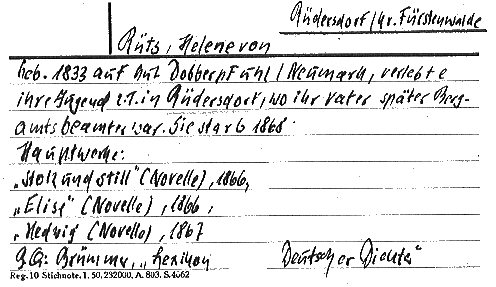 Rüdersdorf/Kr. Fürstenwalde
Rütz, Helene von
Geb. 1833 auf Gut Dobberpfuhl/Neumark, verlebte
ihre Jugend z.T. in Rüdersdorf, wo ihr Vater später Berg-
amtsbeamter war. Sie starb 1868.
Hauptwerke:
„Stolz und still" (Novelle), 1866,
„Elise" (Novelle), 1866,
„Hedwig (Novelle), 1867
Brümmer, „Lexikon Deutscher Dichter"
Reg. 10 Stichnote. 1. 50, 232000, A. 803. S. 4062